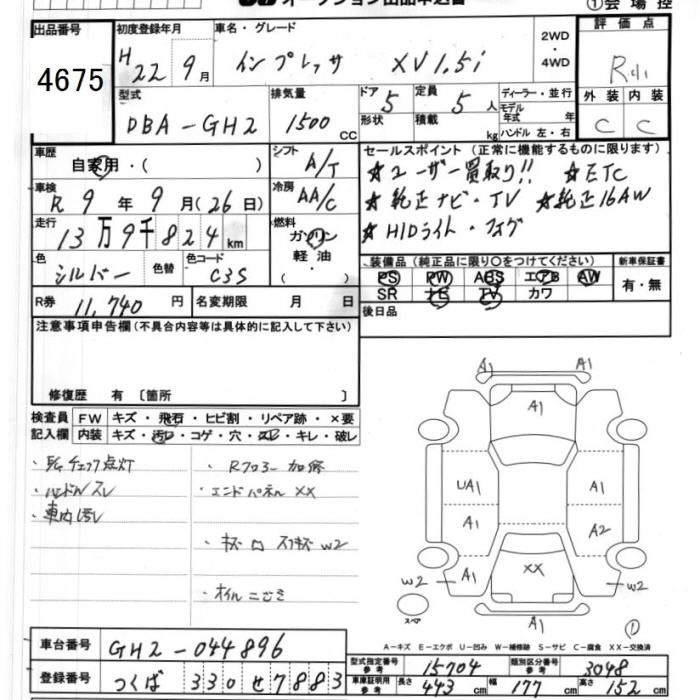 オークション出品申込書 ①会場控
出品番号 初度登録年月 車名・グレード 2WD ・ 4WD 評価点
4675 H22 9月 インプレッサ XV 1.5i R
型式 排気量 ドア 定員 ディーラー・並行 外装 内装
DBA-GH2 1500 CC 5 形状 5人 積載 kg モデル年式 年 ハンドル 左・右 C C
車歴 自家用・( ) シフト A/T セールスポイント (正常に機能するものに限ります)
☆ユーザー買取り!! ☆ETC
車検 R9年9月(26日) 冷房 AA/C ☆純正ナビ・TV ☆純正16AW
走行 13万9千824km 燃料 ガソリン 軽油 ( ) ☆HIDライト・フォグ
色 シルバー 色替 色コード C3S 装備品 (純正品に限り○をつけてください) 新車保証書
PS PW ABS エアB AW 有・無
SR ナビ TV カワ
R券 11,740円 名変期限 月 日 後日品
注意事項申告欄 (不具合内容等は具体的に記入して下さい)
修復歴 有 〔箇所 〕
検査員記入欄 FW キズ・飛石・ヒビ割・リペア跡・×要
内装 キズ・汚レ・コゲ・穴・スレ・キレ・破レ
・チェック点灯 ・Rフロアー加修
・ハンドルスレ ・エンドパネルXX
・車内汚レ
・キズ スリキズ W2
・オイルにじみ
A1 A1
A1
UA1 A1
A1 A2
W2 A1 XX A1 W2
スペア A1 ①
A-キズ E-エクボ U-凹み W-補修跡 S-サビ C-腐食 XX-交換済
車台番号 GH2-044896
型式指定番号 参考 15704 類別区分番号 参考 3048
登録番号 つくば 330 せ 7883
車庫証明用 参考 長さ 443cm 幅 177cm 高さ 152cm